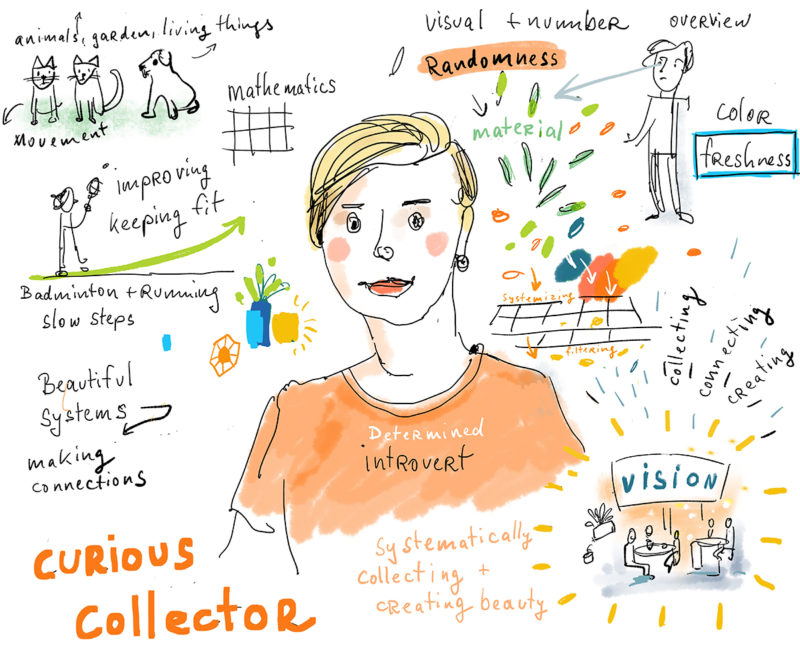 animals, garden, living things
movement
mathematics
improving
keeping fit
Badminton + Running
slow steps
Beautiful
Systems
making
connections
curious
collector
Determined
introvert
Systematically
collecting +
creating beauty
visual + number
Randomness
material
overview
color
freshness
systemizing
filtering
collecting
connecting
creating
vision